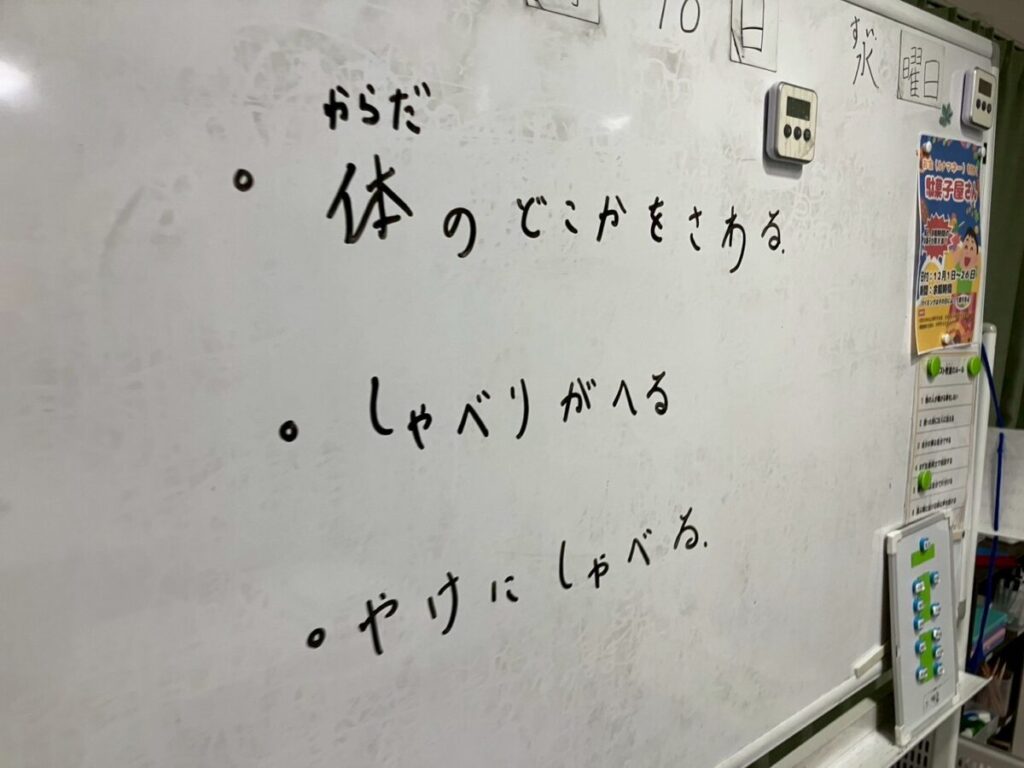 10 日
すい
水 曜日
からだ
• 体のどこかをさわる.
• しゃべりがへる
• やけにしゃべる.
駄菓子屋さん
日付：12月1日～26日